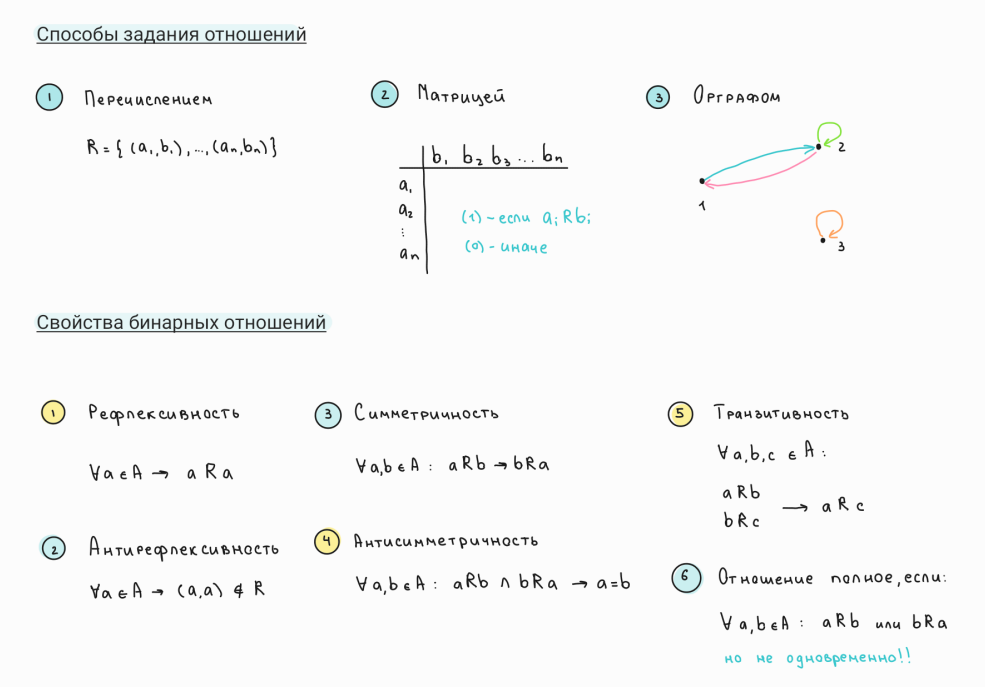 Способы задания отношений
1 Перечислением
R = { (a₁,b₁), ..., (aₙ,bₙ)}
2 Матрицей
b₁ b₂ b₃ ... bₙ
a₁
a₂
⋮
aₙ
(1) - если aᵢRbⱼ
(0) - иначе
3 Орграфом
2
1
3
Свойства бинарных отношений
1 Рефлексивность
∀a∈A → a R a
2 Антирефлексивность
∀a∈A → (a,a) ∉ R
3 Симметричность
∀a,b∈A : aRb → bRa
4 Антисимметричность
∀a,b∈A : aRb ∧ bRa → a=b
5 Транзитивность
∀a,b,c ∈ A :
aRb
bRc → aRc
6 Отношение полное, если:
∀a,b∈A : aRb или bRa
но не одновременно!!